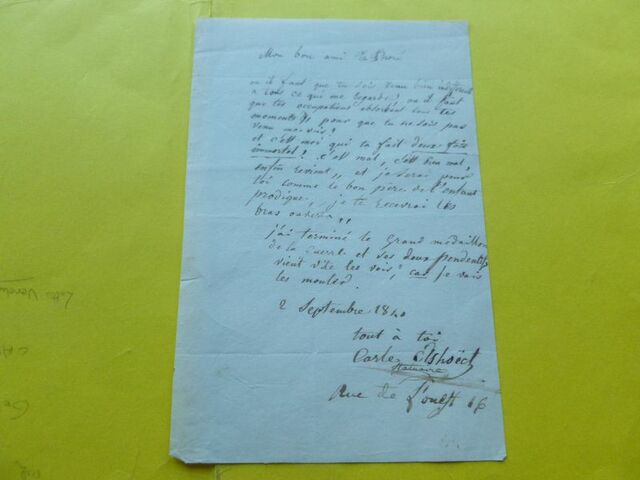 Mon bon ami
ou il faut que tu sois devenu bien indifférent
a tous ce qui me regarde, ou il faut
que tes occupations absorbent tous tes
moments pour que tu ne sois pas
venu me voir!
et c'est moi qui t'a fait deux fois
immortel! c'est mal, c'est bien mal,
enfin revient, et je serai pour
toi comme le bon père de l'enfant
prodigue, je te recevrai les
bras ouverts,,
j'ai terminé le grand médaillon
de la guerre et ses deux pendentifs
vient vite les voir, car je vais
les mouler.
2 Septembre 1840
tout à toi
Carle Elshoëct
statuaire
Rue de l'ouest 46